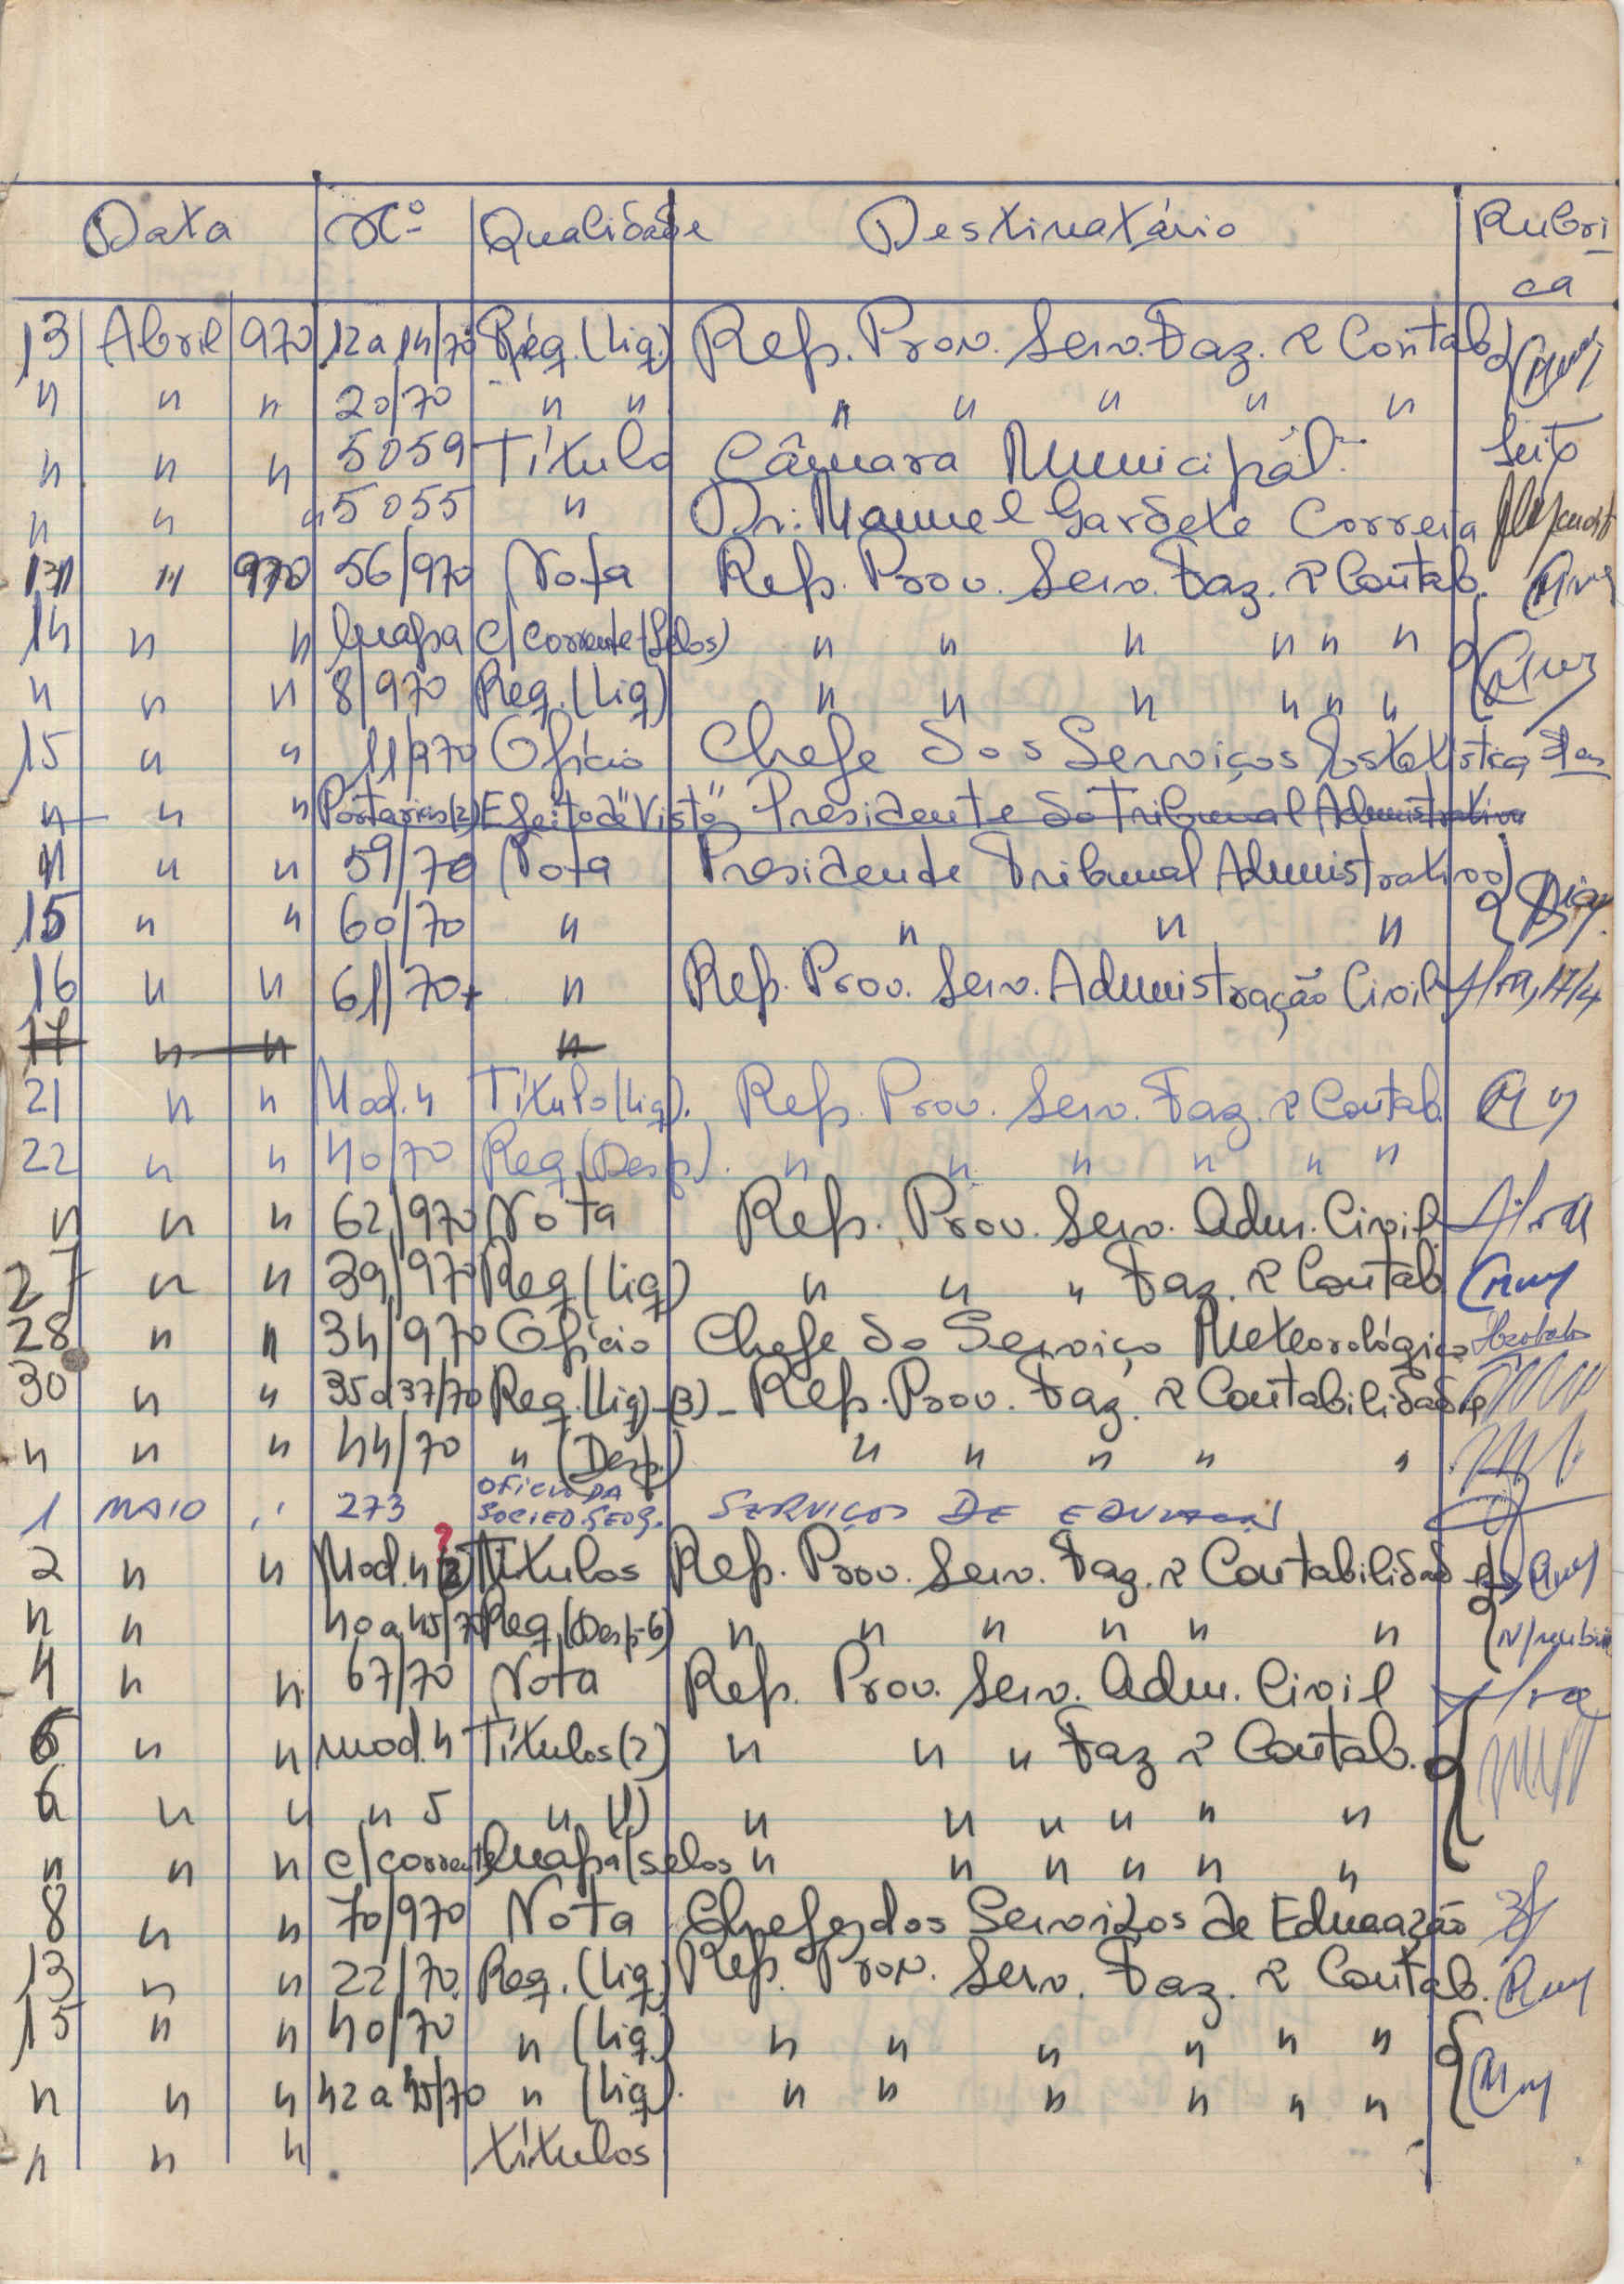 Data Nº Qualidade Destinatário Rubri-
ca
13 Abril 970 12 a 14/70 Req. (Liq.) Rep. Prov. Serv. Faz. e Contab.
" " " 20/70 " " " " " " "
" " " 5059 Título Câmara Municipal Leite
" " " 5055 " Dr. Manuel Gardete Correia
" " 970 56/970 Nota Rep. Prov. Serv. Faz. e Contab.
14 " " Mapa C/Corrente (Selos) " " " " " "
" " " 8/970 Req. (Liq) " " " " " "
15 " " 11/970 Ofício Chefe dos Serviços Estatística
" " " Portarias (2) Efeito de "Visto" Presidente do Tribunal Administrativo
" " " 59/70 Nota Presidente Tribunal Administrativo
15 " " 60/70 " " " "
16 " " 61/70 " Rep. Prov. Serv. Administração Civil 17/4
17 " " "
21 " " Mod. 4 Título (Liq). Rep. Prov. Serv. Faz. e Contab.
22 " " 40/70 Req (Desp). " " " " " "
" " " 62/970 Nota Rep. Prov. Serv. Adm. Civil
27 " " 39/970 Req (Liq) " " " Faz. e Contab.
28 " " 34/970 Ofício Chefe do Serviço Meteorológico
30 " " 35 a 37/70 Req. (Liq) - (3) - Rep. Prov. Faz. e Contabilidade
" " " 44/70 " (Desp.) " " " " "
OFICIO DA
1 MAIO " 273 SOCIED. GEOG. SERVIÇOS DE EDUCAÇÃO
?
2 " " Mod. 4 (2) Títulos Rep. Prov. Serv. Faz. e Contabilidade
" " 40 a 45/70 Req (Desp-6) " " " " " "
4 " " 67/70 Nota Rep. Prov. Serv. Adm. Civil
6 " " mod. 4 Títulos (2) " " " Faz e Contab.
6 " " " 5 " (1) " " " " " "
" " " c/corrente Mapa (selos " " " " " "
8 " " 70/970 Nota Chefe dos Serviços de Educação
13 " " 22/70 Req. (Liq.) Rep. Prov. Serv. Faz. e Contab.
15 " " 40/70 " (Liq.) " " " " " "
" " " 42 a 45/70 " (Liq). " " " " " "
" " " títulos